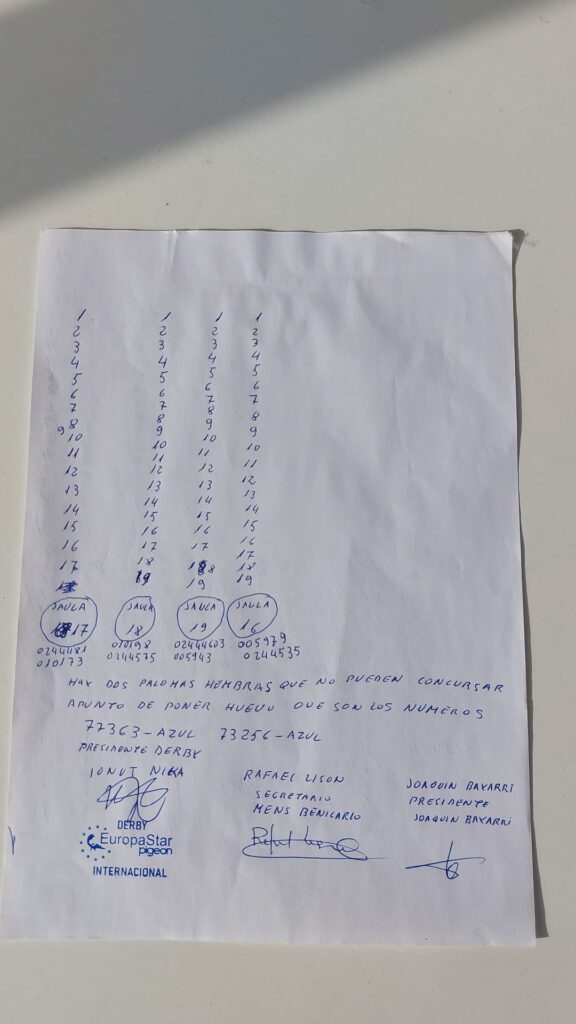 1 1 1 1
2 2 2 2
3 3 3 3
4 4 4 4
5 5 5 5
6 6 6 6
7 7 7 7
8 8 8 8
9 9 9 9
10 10 10 10
11 11 11 11
12 12 12 12
13 13 13 13
14 14 14 14
15 15 15 15
16 16 16 16
17 17 17 17
18 18 18
19 19 19
JAULA JAULA JAULA JAULA
17 18 19 16
0244481 010198 02444603 005979
010173 0244575 005943 0244535
HAY DOS PALOMAS HEMBRAS QUE NO PUEDEN CONCURSAR
APUNTO DE PONER HUEVO QUE SON LOS NUMEROS
77363-AZUL 73256-AZUL
PRESIDENTE DERBY
IONUT NIKA RAFAEL LISON JOAQUIN BAYARRI
SECRETARIO PRESIDENTE
MENS BENICARLO JOAQUIN BAYARRI
DERBY
EuropaStar
pigeon
INTERNACIONAL